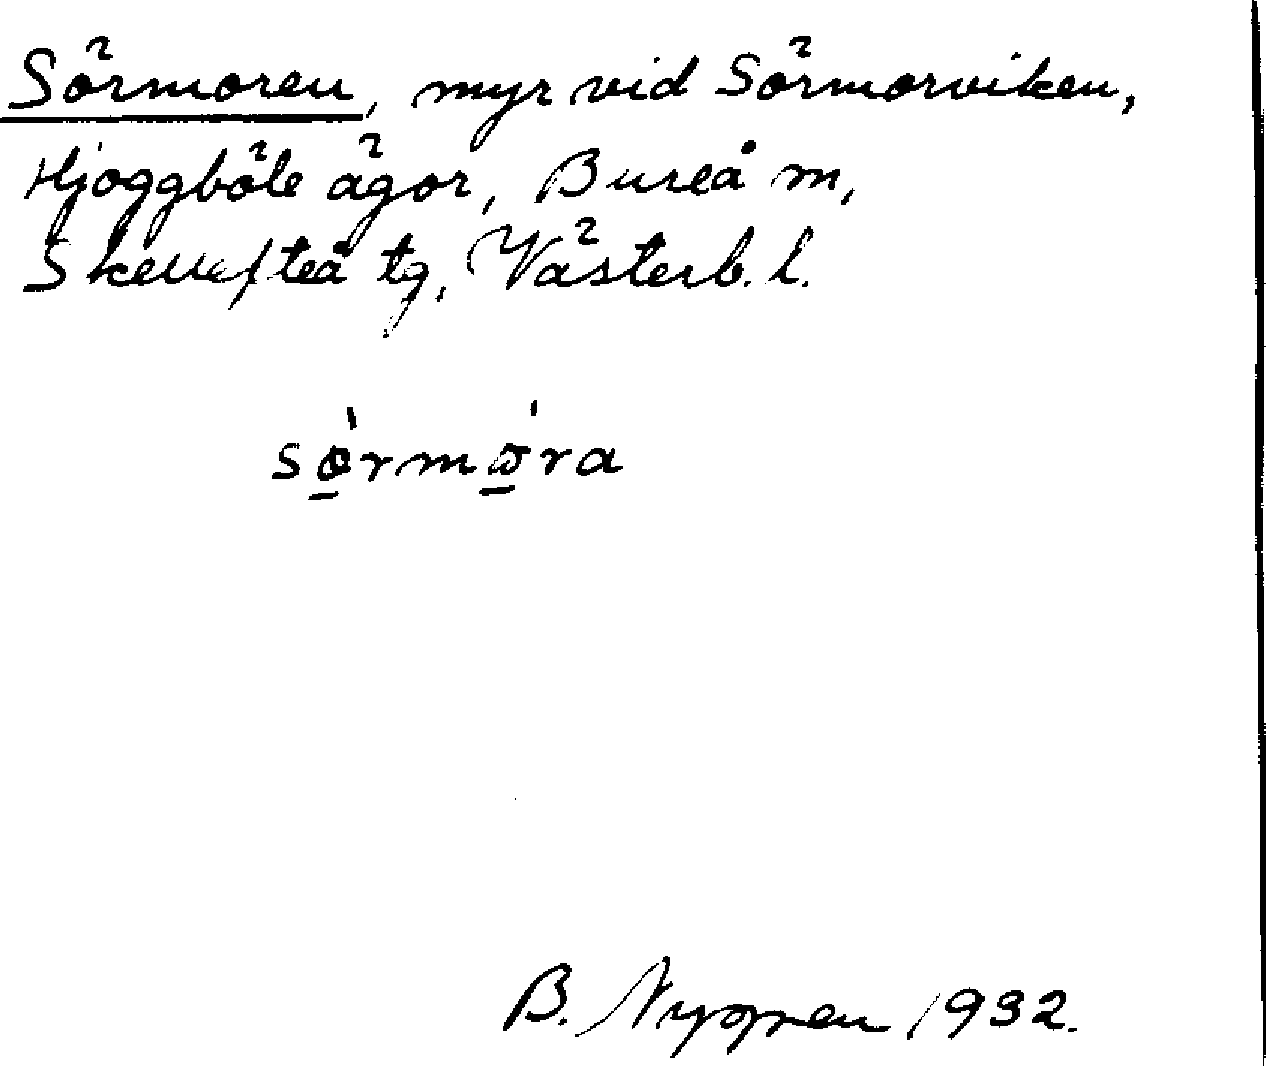 Sörmoren, myr vid Sörmorviken,
Hjoggböle ägor, Bureå m,
Skellefteå tg, Västerb. l.
sø̱̀rmὼ̱ra
B. Nygren 1932.